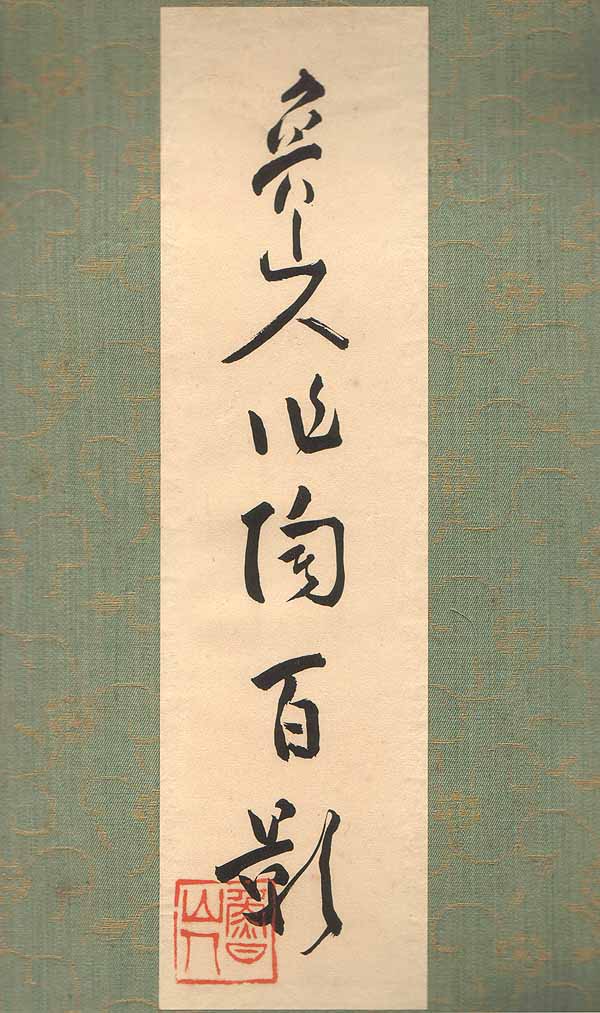 魯山人作陶百影
魯山人